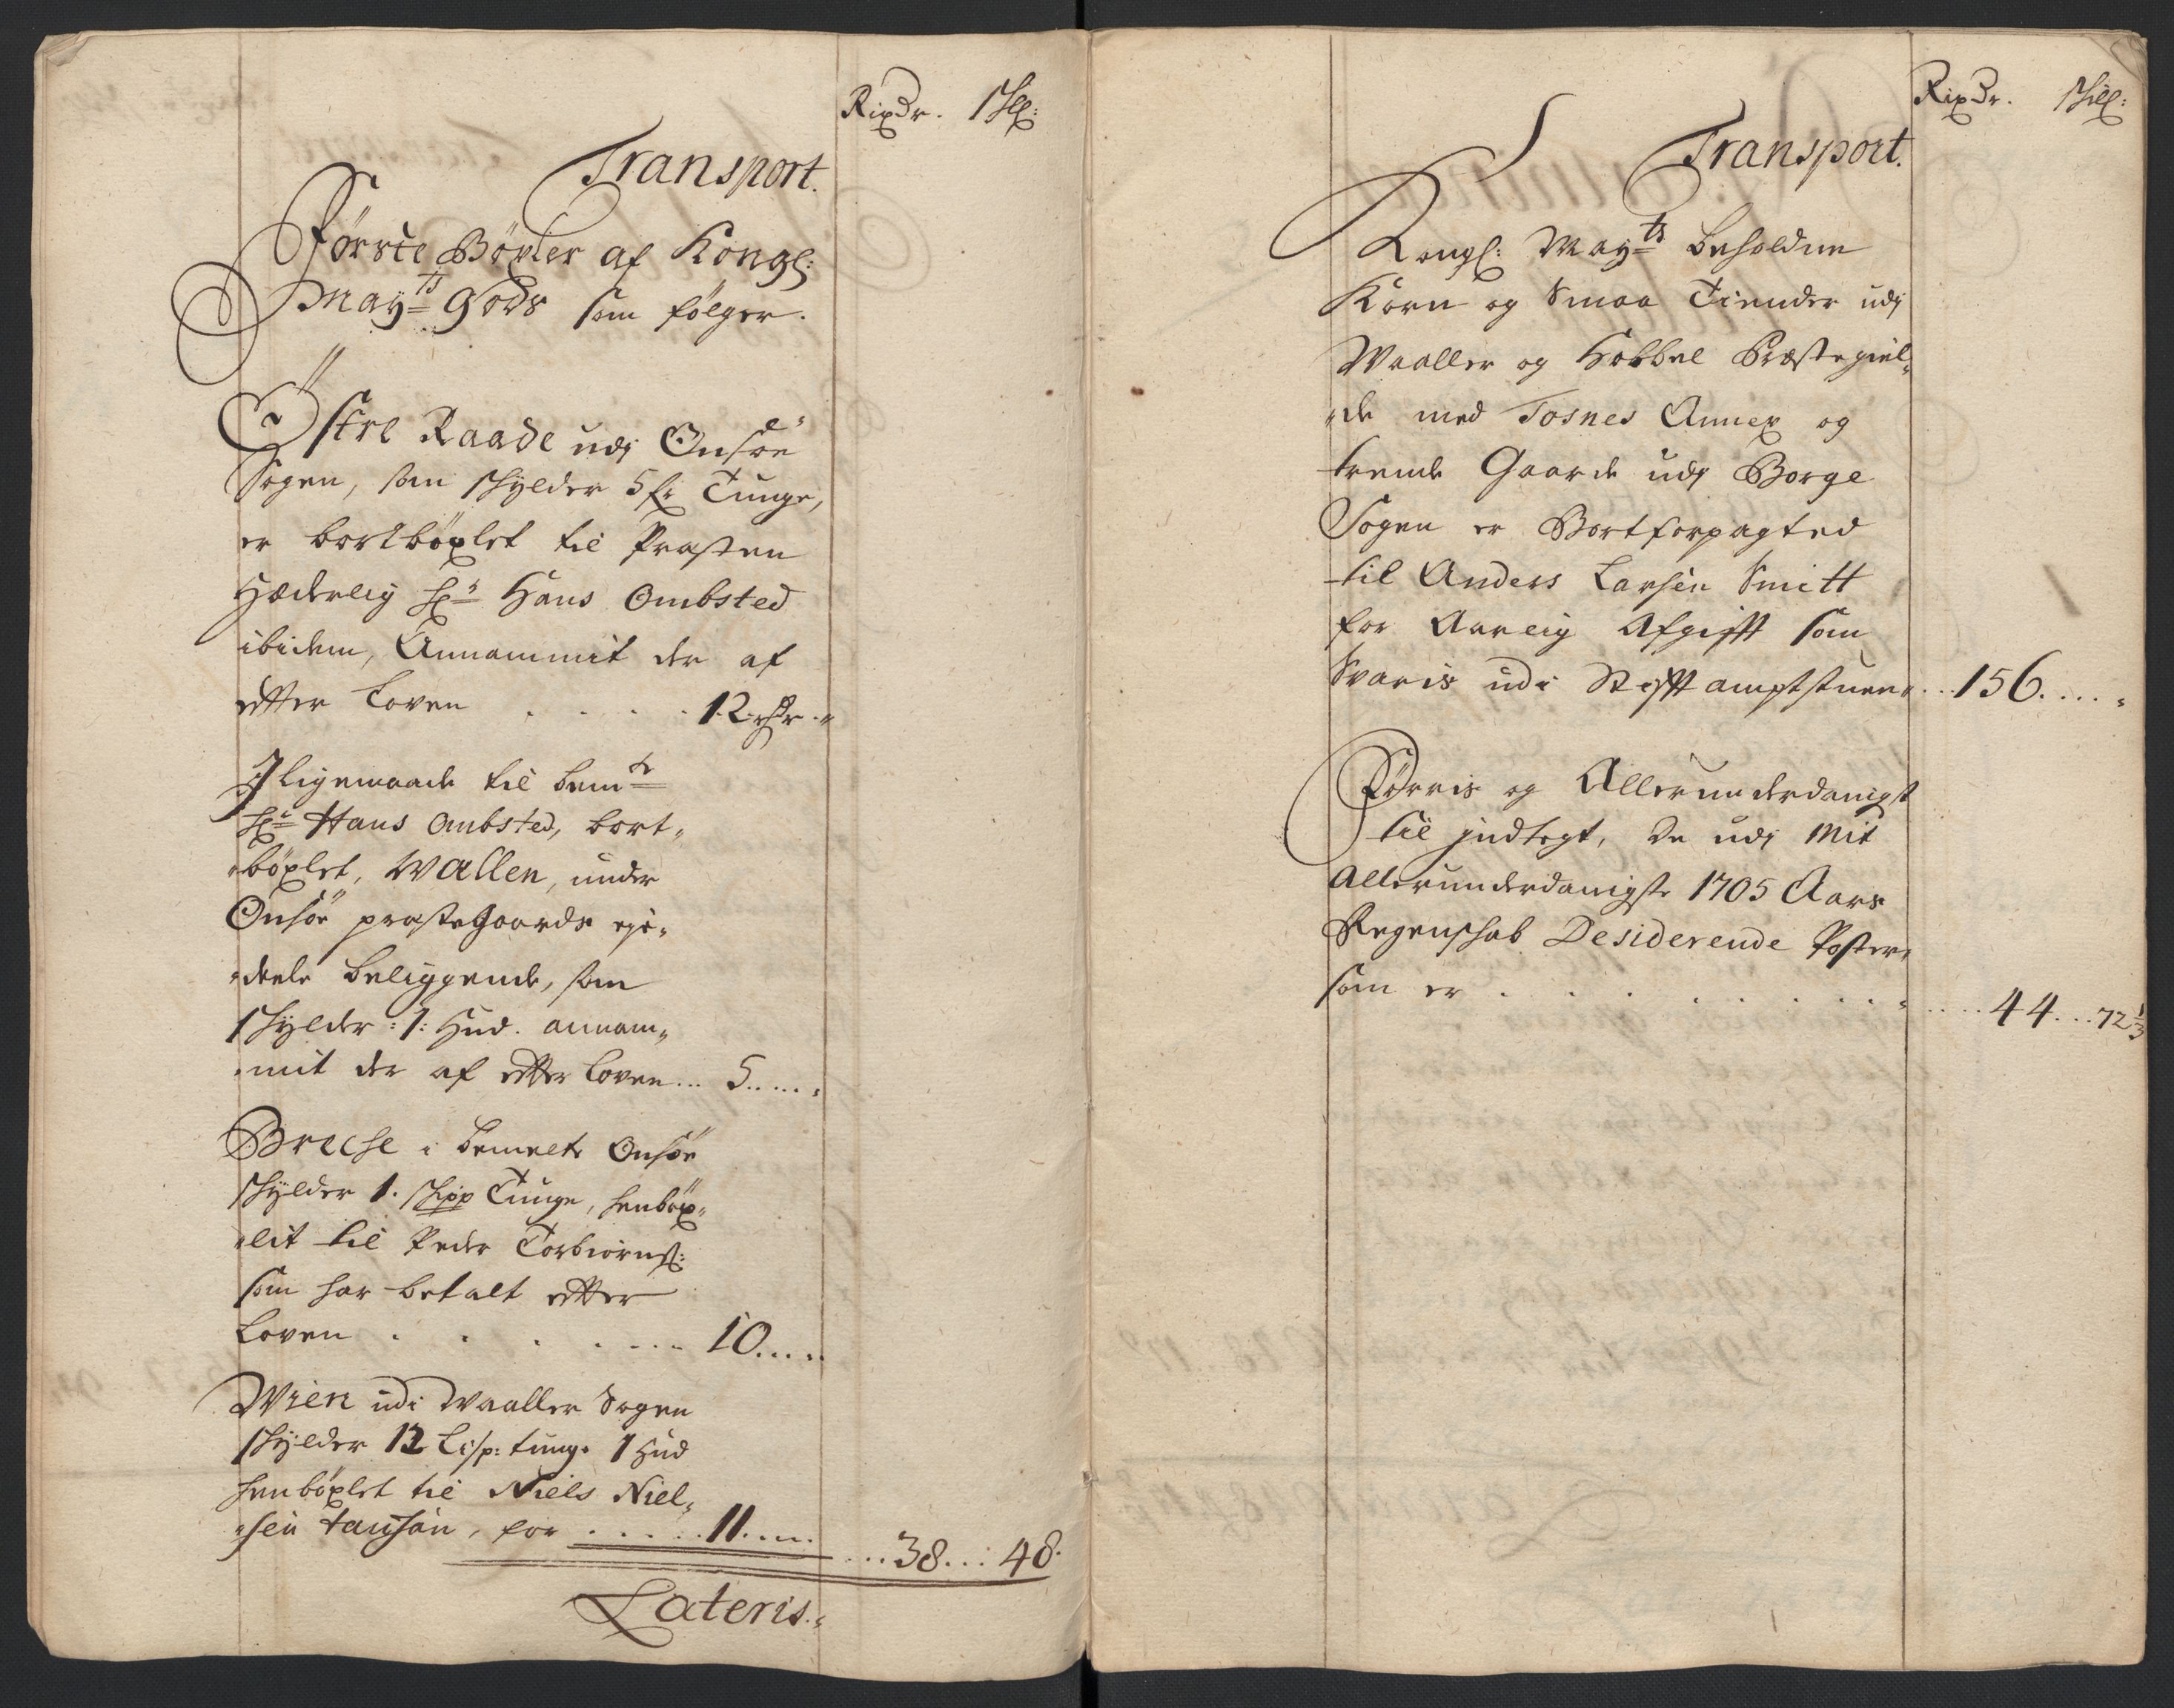 Rixdr. skl:
Transport.
Første Böxler af Kongl:
Mayts Gods som følger.
Østre Raade udj Onsöe
Sogen, som skylder 5 fr Tunge,
er bortböxlet til Præsten
Hæderlig Hr Hans Ombsted
ibidem, Annammit der af
effter Loven . . . . 12 rdr. „
J ligemaade til bemte
Hr Hans Ombsted, bort„
„böxlet, Wallen, under
Onsöe præstegaards eje„
„deele beliggende, som
skylder : 1: Hud. annam„
„mit der af effter Loven... 5.....„
Brecke i bemelte Onsöe
skylder 1. skipp Tunge, henböx„
„lit til Peder Torbiörns:
som har betalt effter
Loven . . . . . . . 10.....
Wien udi Waaller Sogen
skylder 12 Lisp: tunge 1 Hud
henböxlet til Niels Niel„
„sen , for . . . . . 11.....
...38... 48.
Lateris.„
Rixdr. skil:
Transport.
Kongl: Mayts beholdne
Korn og Smaa Tiender udj
Waaller og Hobbel Præstegiel„
„de med Tosnes Annex og
trende Gaarde udj Borge
Sogen er Bortforpagted
til Anders Larsen Smitt
for Aarlig Afgifft som
Svaris udi Stifftamptstuen „...156.....„
Föeris og Allerunderdanigst
til jndtegt, De udj Mit
Allerunderdanigste 1705 Aars
Regenskab Desiderende Poster,
som er . . . . . . . . . „.....44...72⅓